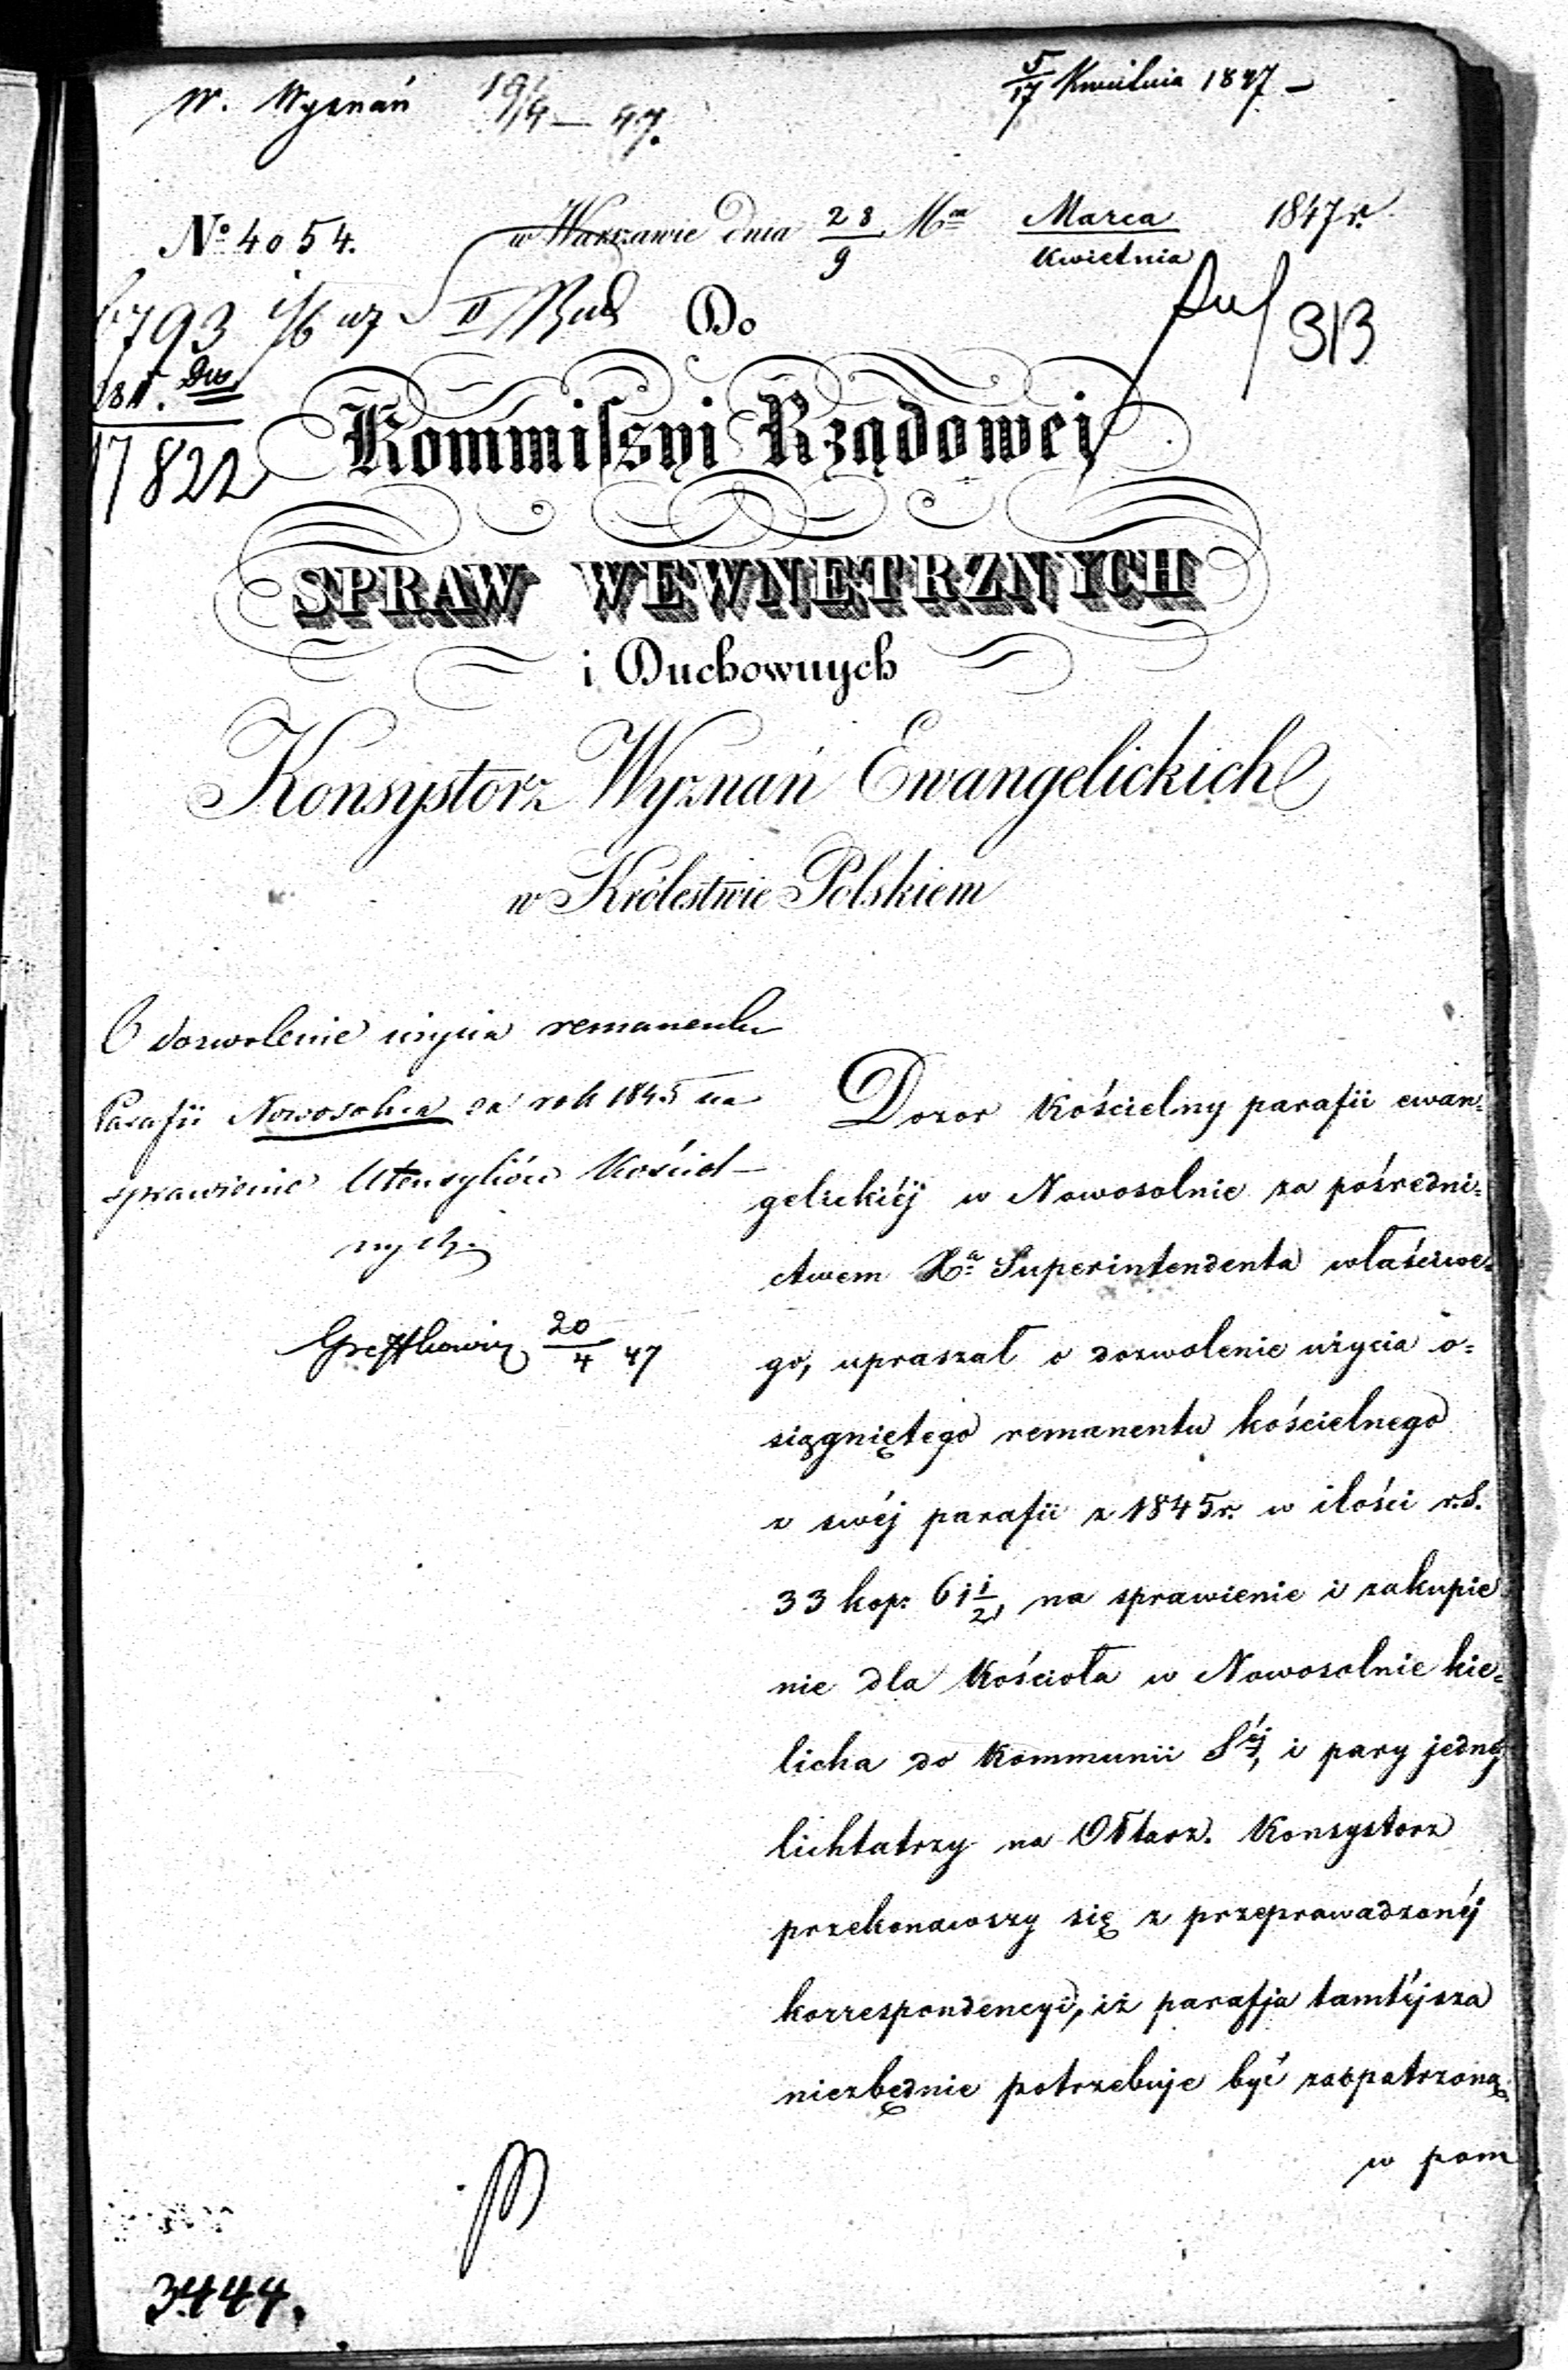 W. Wyznań 19/4 – 47.
5/17 Kwietnia 1847 –
№ 4054.
w Warszawie dnia 28/9 Mca Marca/Kwietnia 1847 r.
6793
II
Do
313
17822
Kommissyi Rządowej
SPRAW WEWNĘTRZNYCH
i Duchownych
Konsystorz Wyznań Ewangelickich
w Królestwie Polskiem
O dozwolenie użycia remanentu
Parafii Nowosolna za rok 1845 na
sprawienie Utensyliów Kościel-
nych.
20/4 47
Dozor Kościelny parafii ewan=
gelickiéj w Nowosolnie za pośredni=
ctwem Xa Superintendenta właściwe=
go, upraszał o dozwolenie użycia o=
siągniętego remanentu kościelnego
z swéj parafii z 1845 r. w ilości r.s.
33 kop. 61 1/2, na sprawienie i zakupie
nie dla Kościoła w Nowosolnie kie=
licha do Kommunii Séj, i pary jednéj
lichtatrzy na Ołtarz. Konsystorz
przekonawszy się z przeprowadzonéj
korrespondencyi, iż parafja tamtéjsza
niezbędnie potrzebuje być zaopatrzoną
w pom
3444.